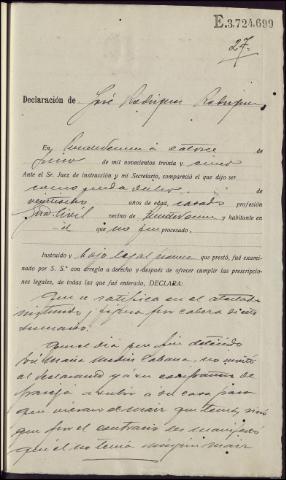 E.3.724.699
27
Declaración de José Rodríguez Rodríguez
En Puentedeume a catorce de
Junio de mil novecientos treinta y cinco
Ante el Sr. Juez de instrucción y mi Secretario, compareció el que dijo ser
como queda dicho, de
años de edad, casado profesión
Gua. Civil vecino de Puentedeume y habitante en
- d que no fue procesado.
Instruido y bajo legal que prestó, fué examinado
por S. S.ª con arreglo a derecho y después de ofrecer cumplir las prescripciones
legales, de todas las que fué enterado, DECLARA:
Que se ratifica en el atestado
instruido y firma por cabeza de este
sumario.
Que el día que fué detenido
José María Cabana, no invitó
al declarante y a su compañero de
pareja a subir a su casa para
que vieran el maiz que tenía, sino
que por el contrario les manifestó
que él no tenía ningún maiz